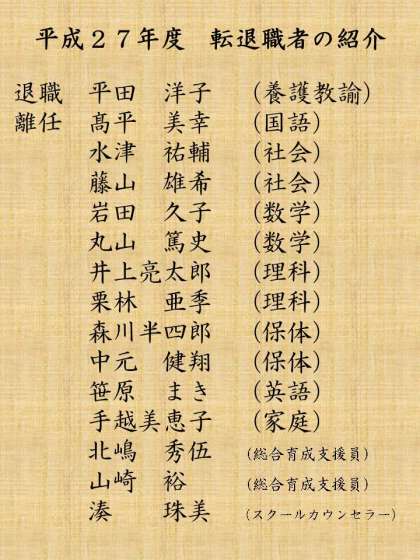 平成２７年度　転退職者の紹介
退職　平田　洋子　（養護教諭）
離任　髙平　美幸　（国語）
水津　祐輔　（社会）
藤山　雄希　（社会）
岩田　久子　（数学）
丸山　篤史　（数学）
井上亮太郎　（理科）
栗林　亜季　（理科）
森川半四郎　（保体）
中元　健翔　（保体）
笹原　まき　（英語）
手越美恵子　（家庭）
北嶋　秀伍　（総合育成支援員）
山崎　裕　（総合育成支援員）
湊　珠美　（スクールカウンセラー）